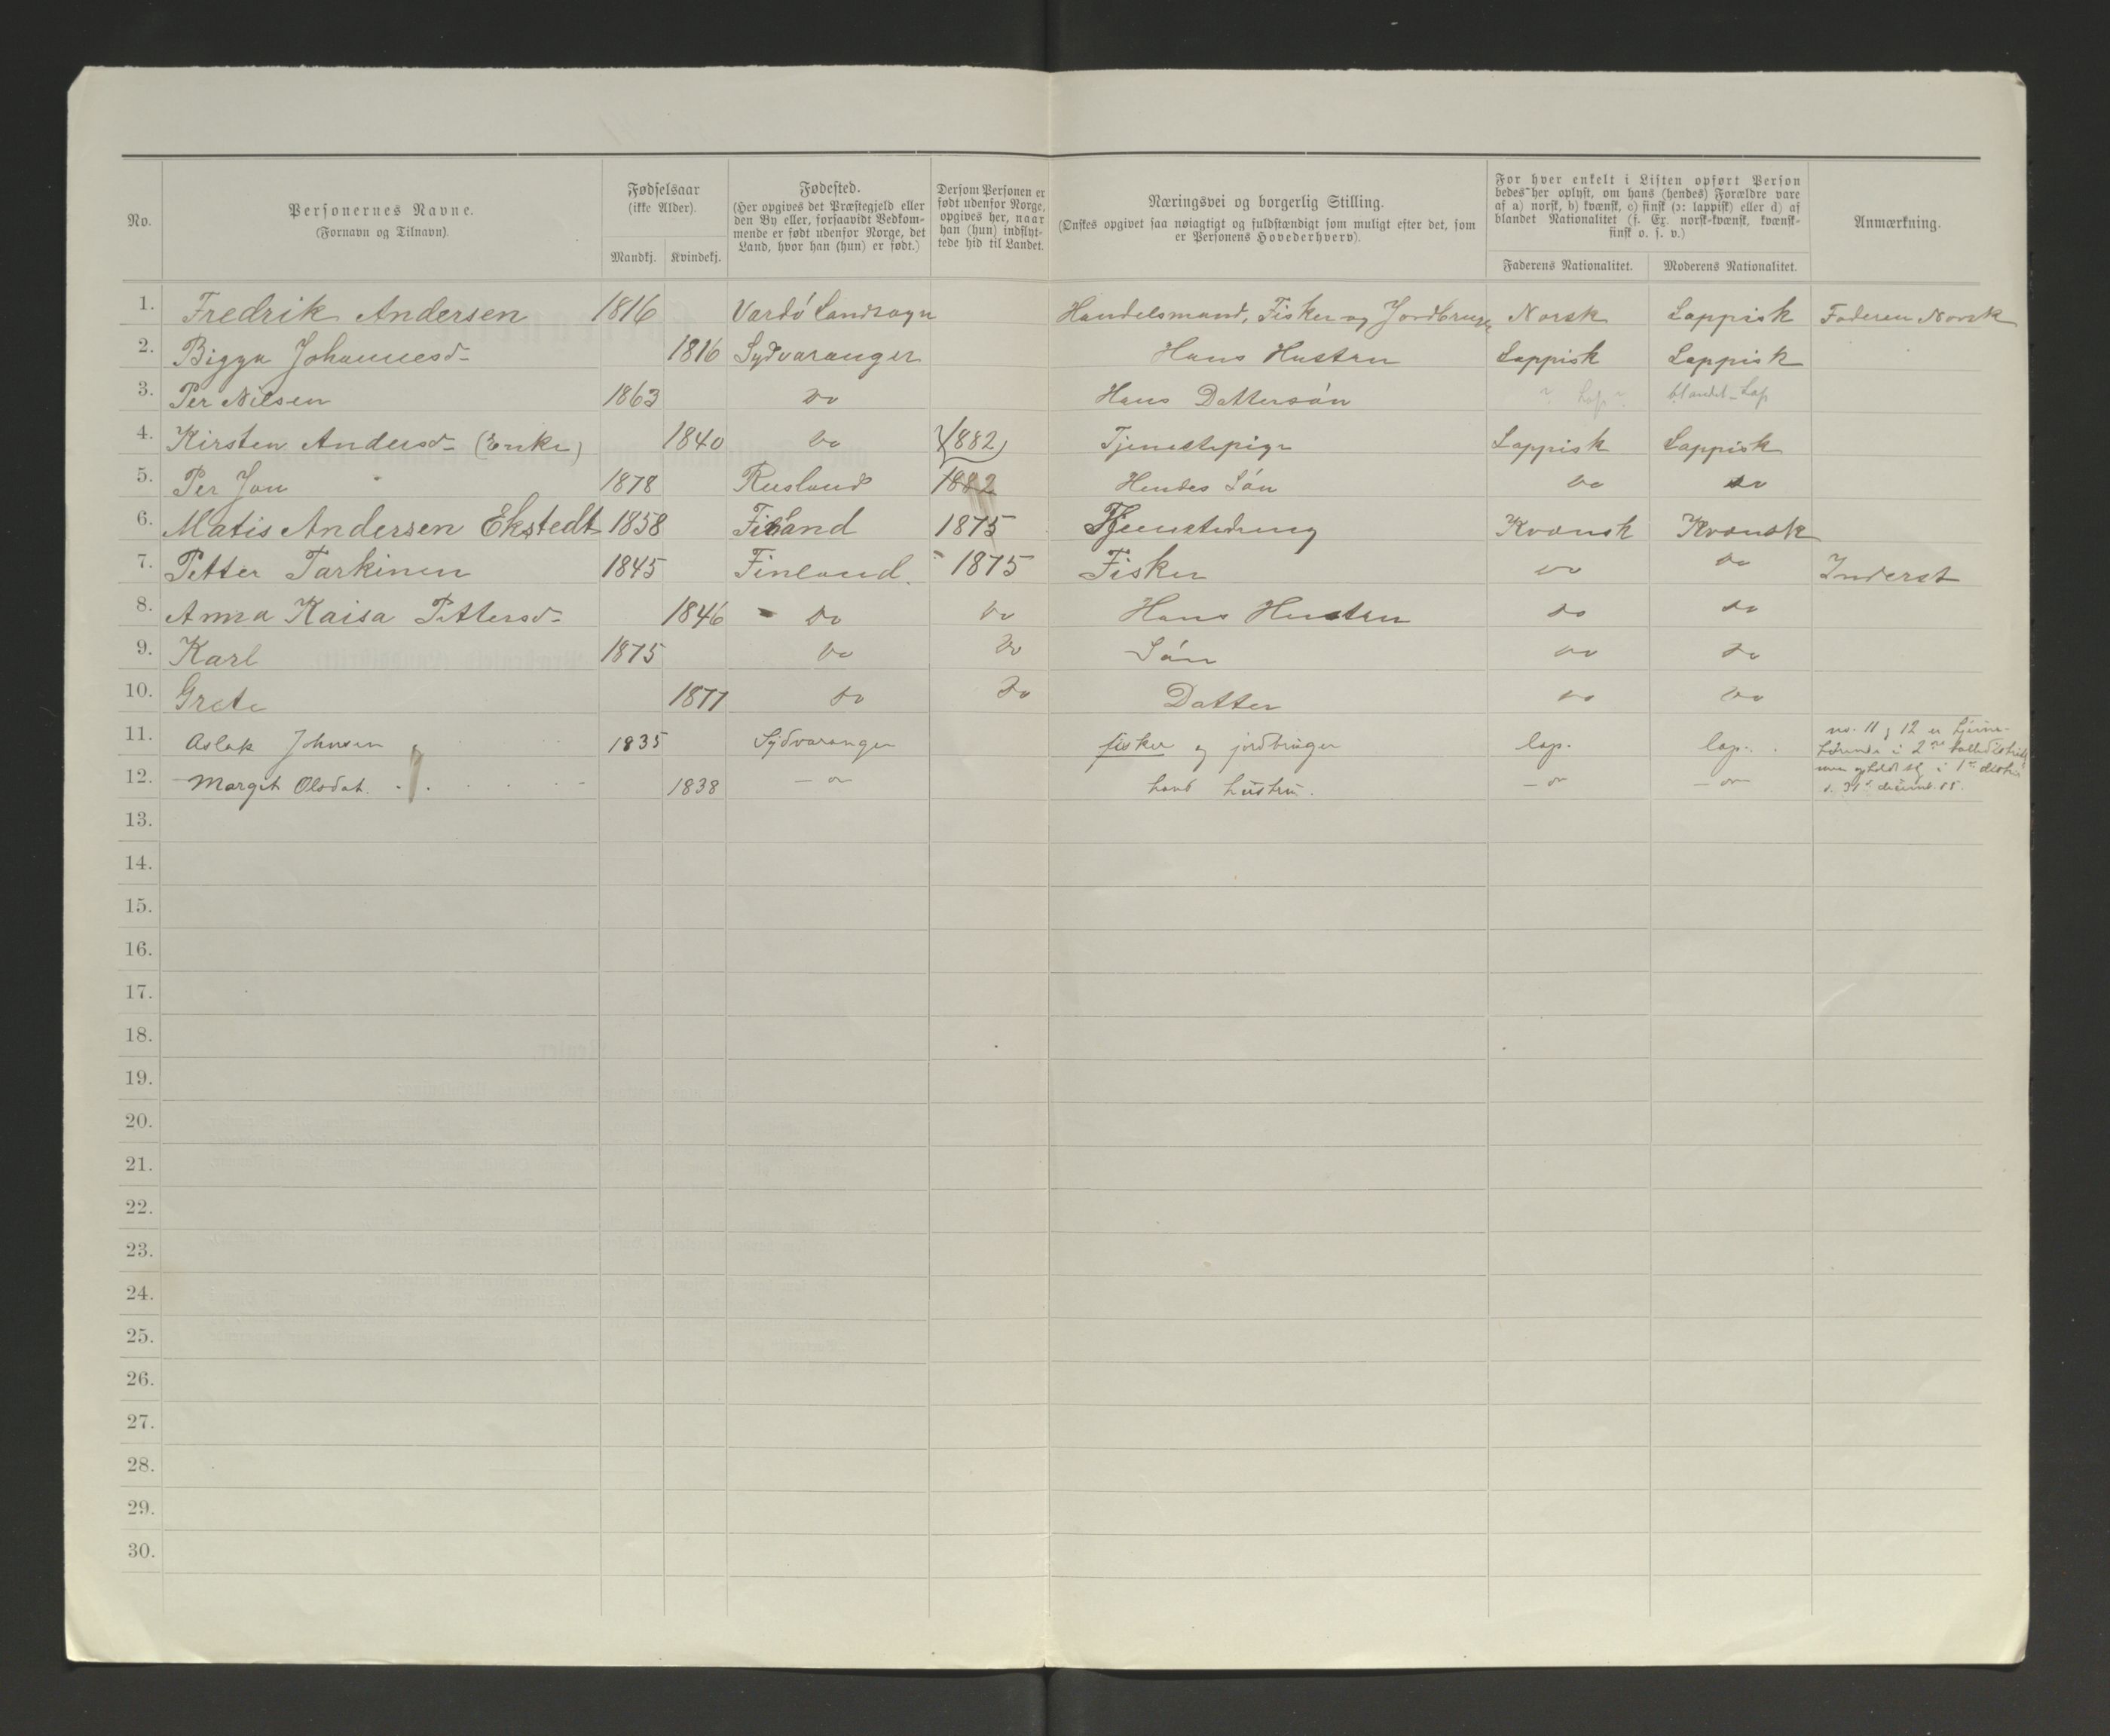 No.
Personernes Navne.
(Fornavn og Tilnavn).
Fødselsaar
(ikke Alder).
Mandkj. Kvindekj.
Fødested.
(Her opgives det Præstegjeld eller
den By eller, forsaavidt Vedkom-
mende er født udenfor Norge, det
Land, hvor han (hun) er født.)
Dersom Personen er
født udenfor Norge,
opgives her, naar
han (hun) indflyt-
tede hid til Landet.
Næringsvei og borgerlig Stilling.
(Ønskes opgivet saa nøiagtigt og fuldstændigt som muligt efter det, som
er Personens Hovederhverv).
For hver enkelt i Listen opført Person
bedes her oplyst, om hans (hendes) Forældre vare
af a) norsk, b) kvænsk, c) finsk (ɔ: lappisk) eller d) af
blandet Nationalitet (f. Ex. norsk-kvænsk, kvænsk-
finsk o. s. v.)
Faderens Nationalitet. Moderens Nationalitet.
Anmærkning.
1. Fredrik Andersen 1816 Vardö Landsogn Handelsmand, Fisker og Jordbruger Norsk Lappisk Faderen Norsk
2. Bigga Johannesd- 1816 Sydvaranger Hans Hustru Lappisk Lappisk
3. Per Nilsen 1863 Do Hans Dattersön ? Lap ? blandet-Lap
4. Kirsten Andersd- (Enke) 1840 Do 1882 Tjenestepige Lappisk Lappisk
5. Per Jon 1878 Rusland 1882 Hendes Sön Do Do
6. Matis Andersen Ekstedt 1858 Finland 1875 Tjenestedreng Kvænsk Kvænsk
7. Petter Tarkinen 1845 Finland. 1875 Fisker Do Do Inderst
8. Anna Kaisa Pettersd- 1846 Do Do Hans Hustru Do Do
9. Karl 1875 Do Do Sön Do Do
10. Grete 1877 Do Do Datter Do Do
11. Aslak Johnsen 1835 Sydvaranger fisker og jordbruger lap. lap.
no. 11 g 12 er hjemme-
hörende i 2det tælledistrikt
men opholdt sig i 1ste distr.
d. 31te decemb. 85.
12. Margit Olsdat. 1838 — do hans hustru. — do — do
13.
14.
15.
16.
17.
18.
19.
20.
21.
22.
23.
24.
25.
26.
27.
28.
29.
30.